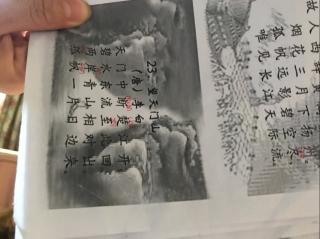 23.望天门山
(唐)李白
天门中断楚江开，
碧水东流至此回。
两岸青山相对出，
孤帆一片日边来。
故人西辞黄
烟花三月下扬州。
孤帆远影碧空尽，
唯见长江天际流。